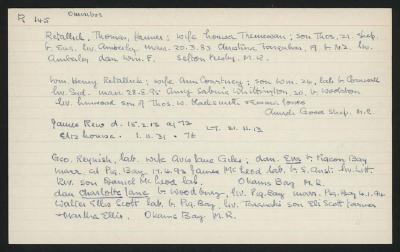 R 145 Omnibus
Retallick, Thomas, farmer; wife Louisa Tremewan; son Thos, 21, shep.
b. Eus. liv. Amberley marr. 20.3.83 Christina Farquhar, 19, b. N.Z. liv.
Amberley dau Wm. F. Sefton Presby. M.R.
Wm. Henry Retallick; wife Ann Courtney; son Wm. 26, lab b Cornwall
liv. Syd. marr. 28.5.95 Amy Sabina Whittington, 20, b. Woodston
liv. Linwood son of Thos. W. blacksmith + Emma Jones
Church Good Shep. M.R.
James Rew d. 15.2.13 aged 72
Eliz Louise - 1.11.31 - 76 LT. 21.11.13
Geo. Reynish, lab. wife Avis Jane Giles; dau. Eus b. Pigeon Bay
marr. at Pig. Bay 17.4.93 James McLeod lab. b. S. Aust. liv. Litt.
Riv. son Daniel McLeod lab. Okains Bay M.R.
dau Charlotte Jane b Woodbury, liv. Pig. Bay marr. Pig. Bay 4.1.94
Walter Ellis Scott lab. b Pig. Bay, liv. Taranaki son Eli Scott farmer
+ Martha Ellis. Okains Bay M.R.